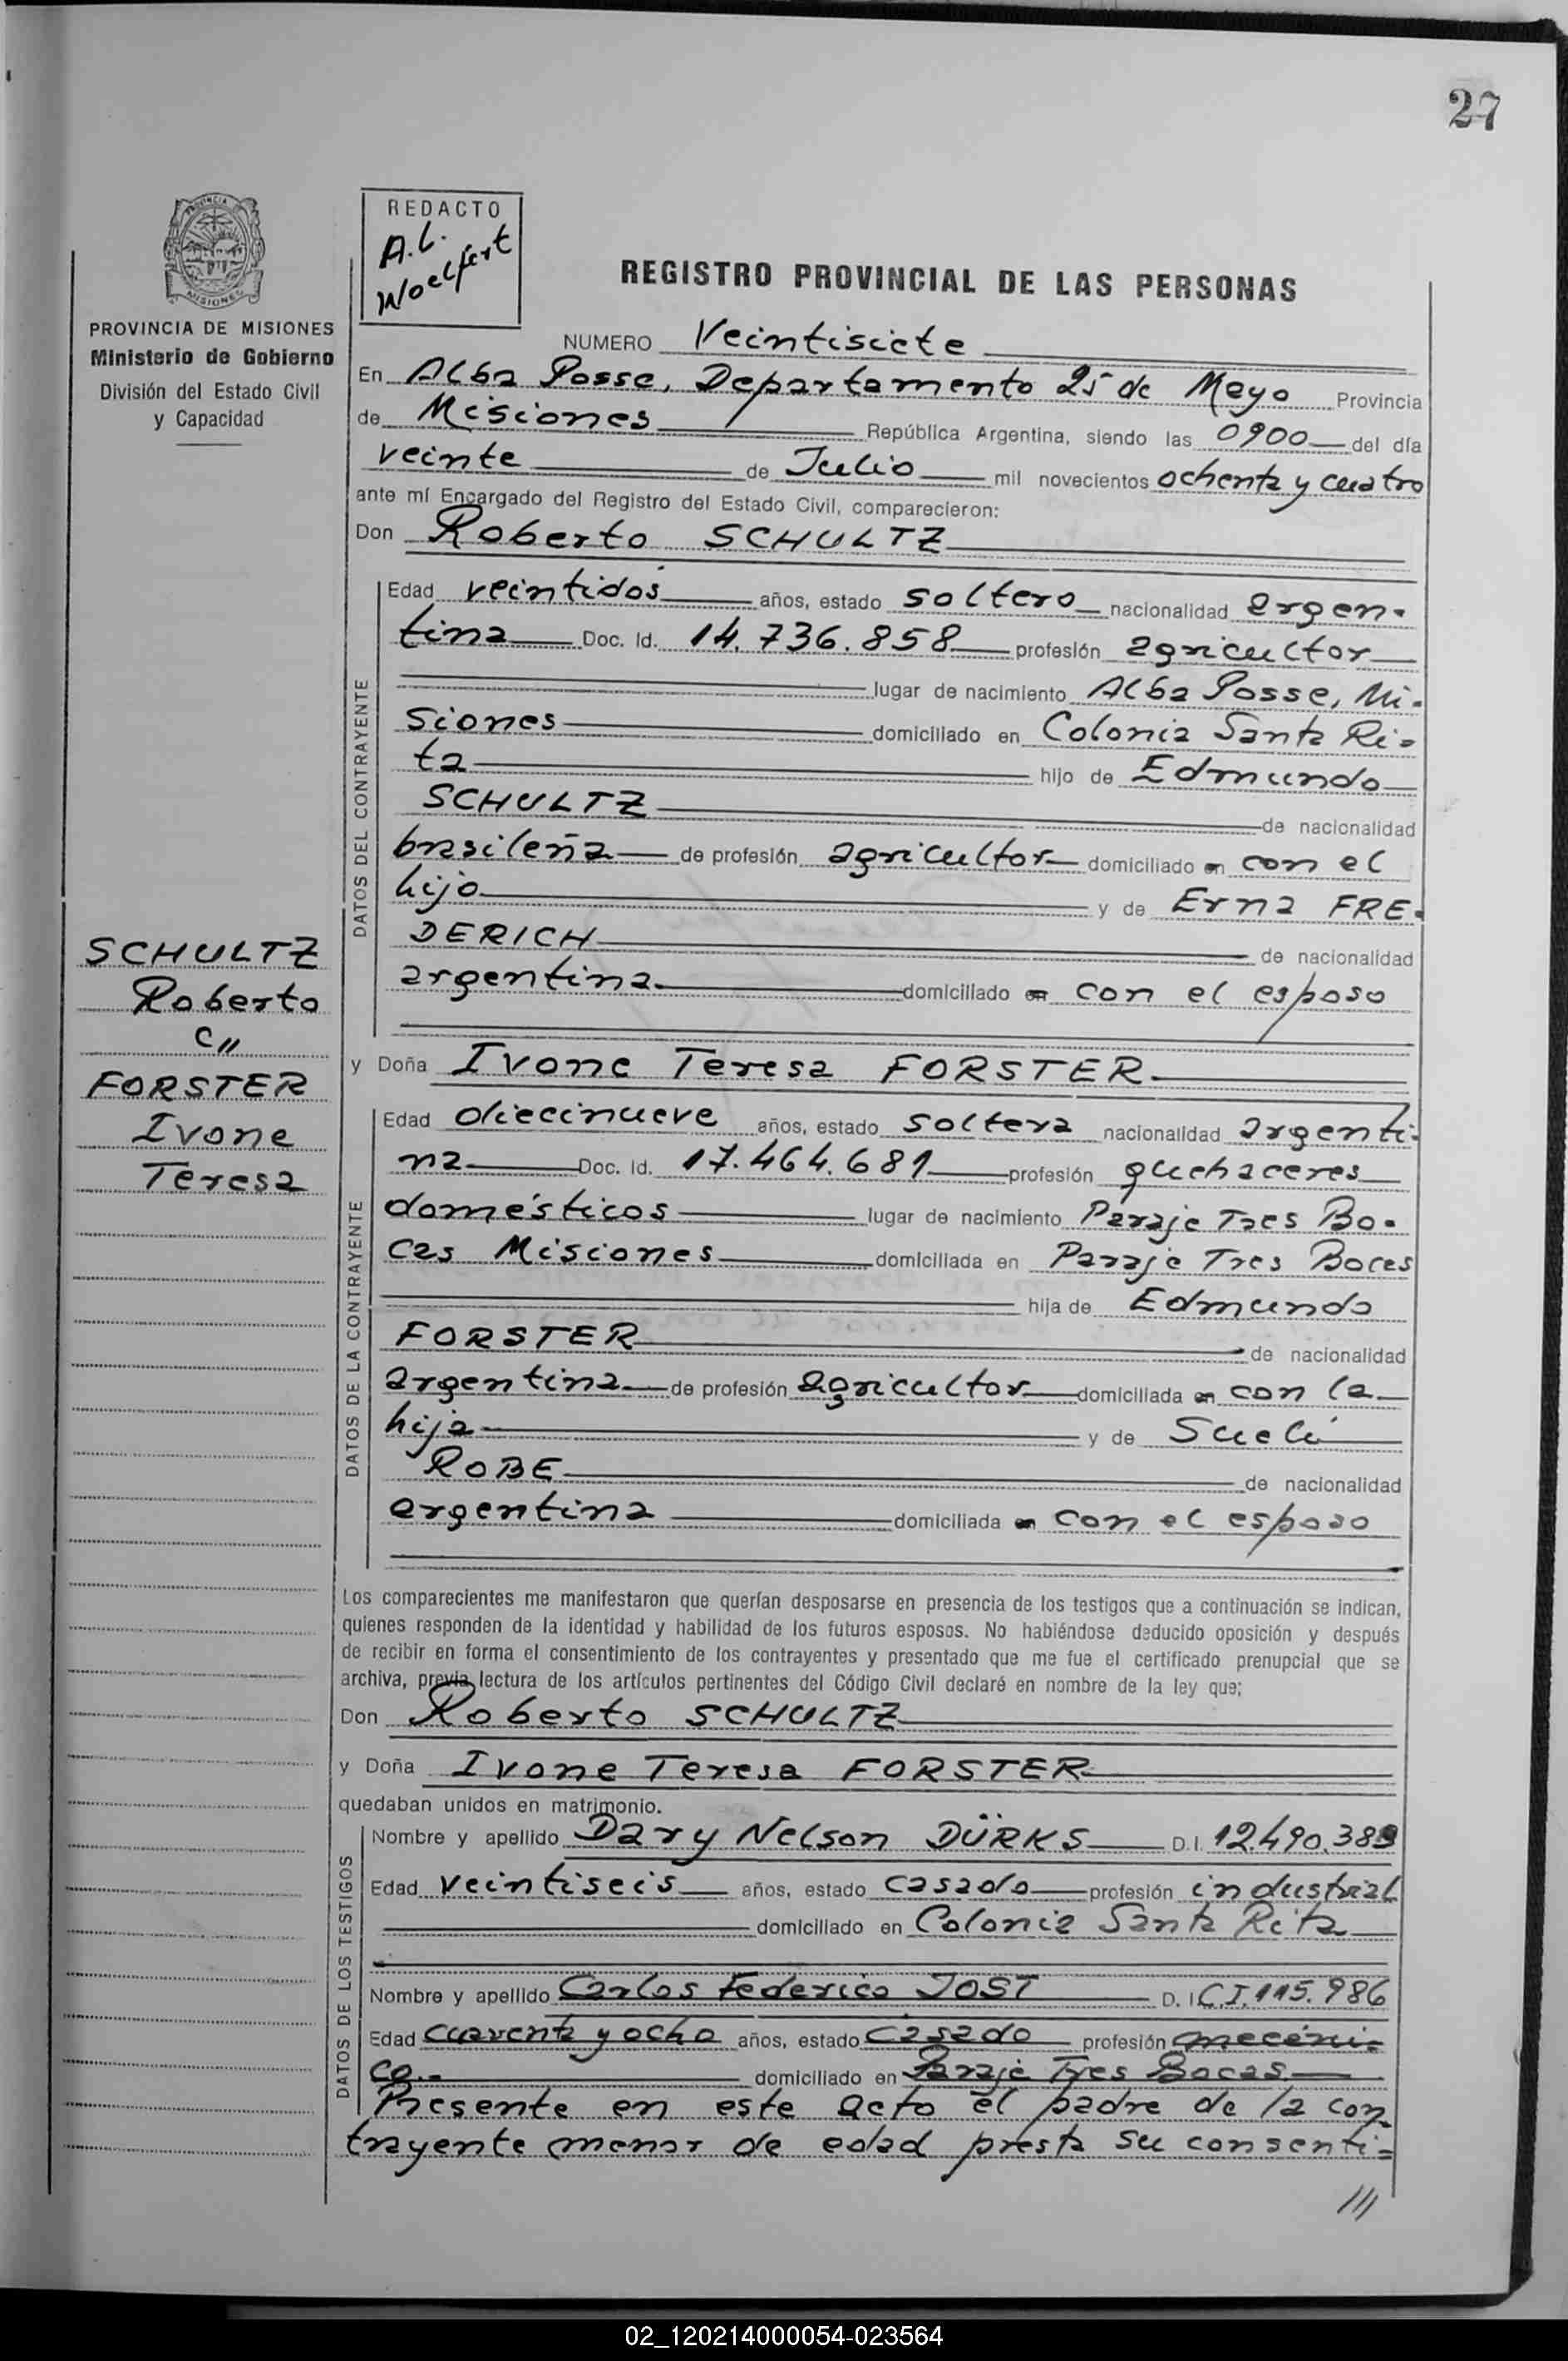 27
PROVINCIA
MISIONES
PROVINCIA DE MISIONES
Ministerio de Gobierno
División del Estado Civil
y Capacidad
REDACTO
A.L.
Woelfert
REGISTRO PROVINCIAL DE LAS PERSONAS
NUMERO Veintisiete
En Alba Posse, Departamento 25 de Mayo Provincia
de Misiones República Argentina, siendo las 0900 del día
veinte de Julio mil novecientos ochenta y cuatro
ante mí Encargado del Registro del Estado Civil, comparecieron:
Don Roberto SCHULTZ
DATOS DEL CONTRAYENTE
Edad veintidos años, estado soltero nacionalidad argen-
tina Doc. Id. 14.736.858 profesión agricultor
lugar de nacimiento Alba Posse, Mi-
siones domiciliado en Colonia Santa Ri-
ta hijo de Edmundo
SCHULTZ de nacionalidad
brasileña de profesión agricultor domiciliado en con el
hijo y de Erna FRE-
DERICH de nacionalidad
argentina domiciliado en con el esposo
SCHULTZ
Roberto
c//
FORSTER
Ivone
Teresa
y Doña Ivone Teresa FORSTER
DATOS DE LA CONTRAYENTE
Edad diecinueve años, estado soltera nacionalidad argenti-
na Doc. Id. 17.464.681 profesión quehaceres
domésticos lugar de nacimiento Paraje Tres Bo-
cas Misiones domiciliada en Paraje Tres Bocas
hija de Edmundo
FORSTER de nacionalidad
argentina de profesión agricultor domiciliada en con la
hija y de Sueli
ROBE de nacionalidad
argentina domiciliada en con el esposo
Los comparecientes me manifestaron que querían desposarse en presencia de los testigos que a continuación se indican,
quienes responden de la identidad y habilidad de los futuros esposos. No habiéndose deducido oposición y después
de recibir en forma el consentimiento de los contrayentes y presentado que me fue el certificado prenupcial que se
archiva, previa lectura de los artículos pertinentes del Código Civil declaré en nombre de la ley que;
Don Roberto SCHULTZ
y Doña Ivone Teresa FORSTER
quedaban unidos en matrimonio.
DATOS DE LOS TESTIGOS
Nombre y apellido Dary Nelson DÜRKS D.I. 12.490.389
Edad veintiseis años, estado casado profesión industrial
domiciliado en Colonia Santa Rita
Nombre y apellido Carlos Federico JOST D. I C.I. 115.986
Edad cuarenta y ocho años, estado casado profesión mecáni-
co.- domiciliado en Paraje Tres Bocas
Presente en este acto el padre de la con-
trayente menor de edad presta su consenti-
///
02_120214000054-023564